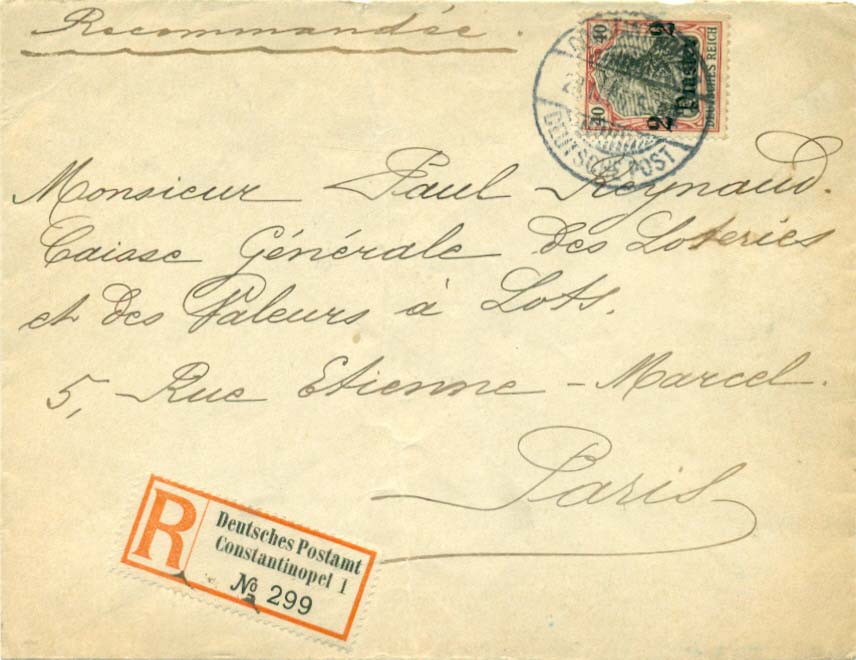 Recommandée.
40 40
2 Piaster 2
DEUTSCHES REICH
DEUTSCHE POST
Monsieur Paul Reynaud.
Caisse Générale des Loteries
et des Valeurs à Lots.
5, Rue Etienne-Marcel.
Paris
R
Deutsches Postamt
Constantinopel 1
No a 299